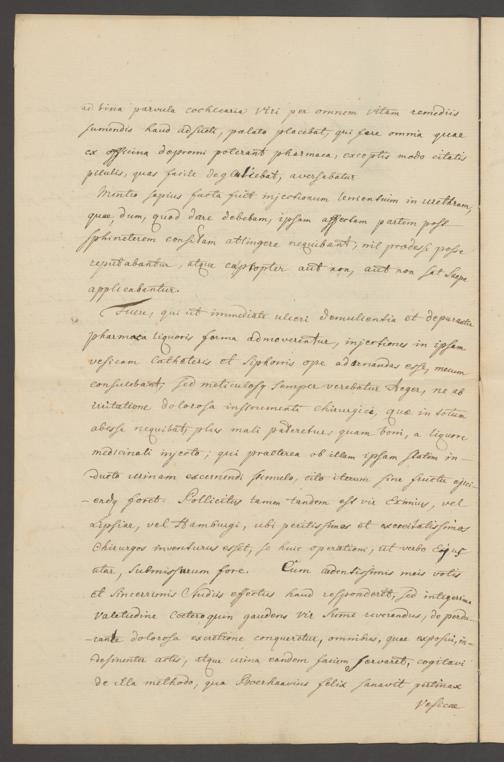 ad bina parvula cochlearia Viri per omnem vitam remediis
sumendis haud adsueti, palato placebat, qui fere omnia quae
ex officina depromi poterant pharmaca, exceptis modo citatis
pilulis, quas facile deglutiebat, aversabatur.
Mentio saepius facta fuit injectionum lenientium in urethram,
quae dum, quod dare debebam, ipsam affectam partem post
sphincterem consitam attingere nequibant, nil prodesse posse
reputabantur, atque eapropter aut non, aut non sat saepe
applicabantur.
Fuere, qui ut immediate ulceri demulcentia et depurantia
pharmaca liquoris forma admoverentur, injectiones in ipsam
vesicam Catheteris et Siphonis ope adornandas esse, mecum
consulebant, sed meticulosus semper verebatur Aeger, ne ab
irritatione dolorosa instrumenti chirurgici, quae in totum
abesse nequibat, plus mali pateretur, quam boni, a liquore
medicinali injecto; qui praeterea ob illam ipsam statim in-
ducto urinam excernendi stimulo, cito iterum sine fructu ejici-
endus foret. Pollicitus tamen tandem est vir Eximius, vel
Lipsiae, vel Hamburgi, ubi peritissimos et exercitatissimos
Chirurgos inventurus esset, se huic operationi, ut verbo Ejus
utar, submissurum fore. Cum ardentissimis meis votis
et sincerrimis studiis effectus haud responderet, sed integerrima
valetudine coeteroquin gaudens vir summe reverendus, de perdu-
rante dolorosa excretione conquereretur, omnibus, quae exposui, in-
desinenter actis, atque urina eandem faciem servaret, cogitavi
de illa methodo, qua Boerhaavius felix sanavit pertinax
Vesicae